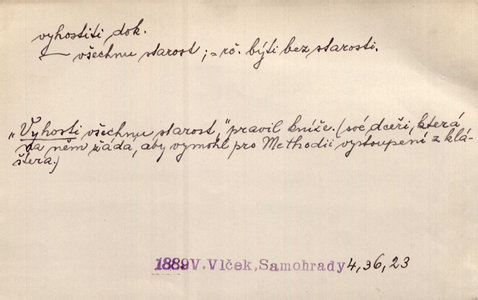 vyhostiti dok.
— všechnu starost; = rč. býti bez starosti.
„Vyhosti všechnu starost,“ pravil kníže. (své dceři, která
na něm žádá, aby vymohl pro Methodii vystoupení z klá-
štera.)
1889 V. Vlček, Samohrady 4, 36, 23